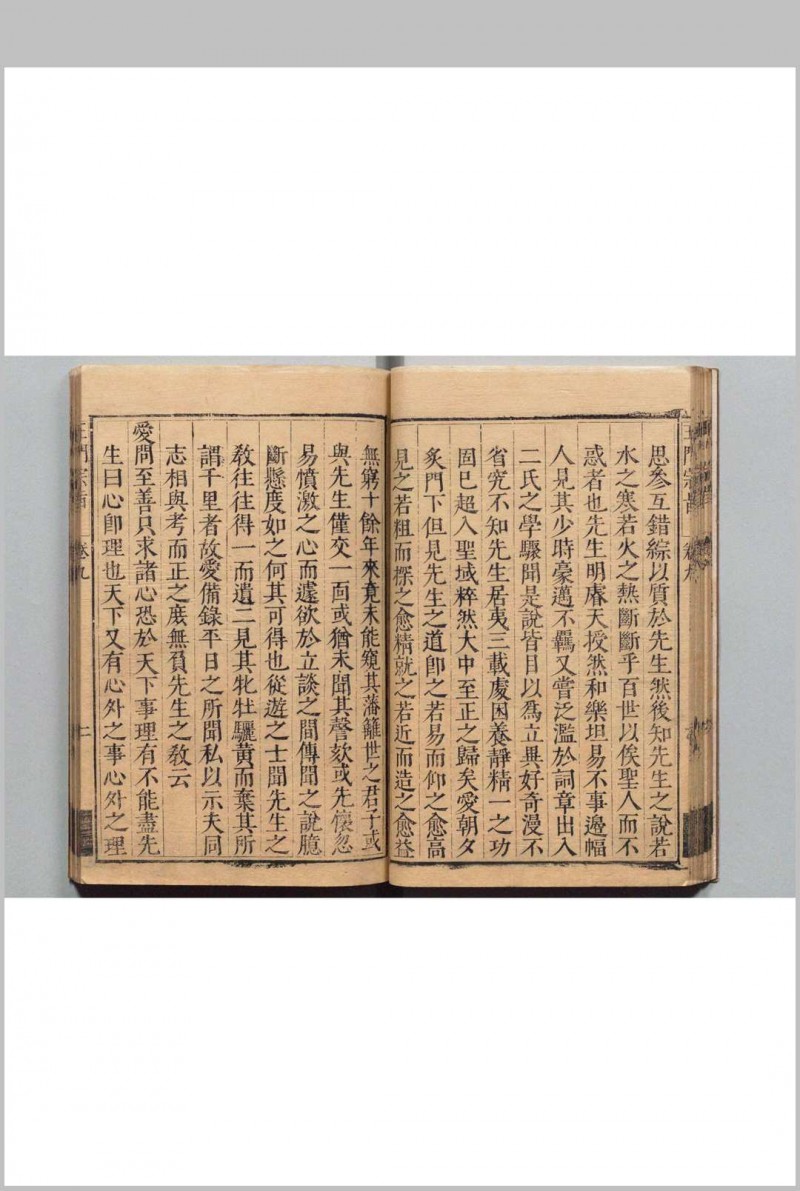 思參互錯綜以質於先生然後知先生之說若
水之寒若火之熱斷斷乎百世以俟聖人而不
惑者也先生明睿天授然和樂坦易不事邊幅
人見其少時豪邁不羈又嘗泛濫於詞章出入
二氏之學驟聞是說皆目以爲立異好奇漫不
省究不知先生居夷三載處困養靜精一之功
固已超入聖域粹然大中至正之歸矣愛朝夕
炙門下但見先生之道卽之若易而仰之愈高
見之若粗而探之愈精就之若近而造之愈益
無窮十餘年來竟未能窺其藩籬世之君子或
與先生僅交一面或猶未聞其謦欬或先懷忽
易憤激之心而遽欲於立談之間傳聞之說臆
斷懸度如之何其可得也從遊之士聞先生之
敎往往得一而遺二見其牝牡驪黃而棄其所
謂千里者故愛備錄平日之所聞私以示夫同
志相與考而正之庶無負先生之敎云
愛問至善只求諸心恐於天下事理有不能盡先
生曰心卽理也天下又有心外之事心外之理
王門宗旨 卷九
二